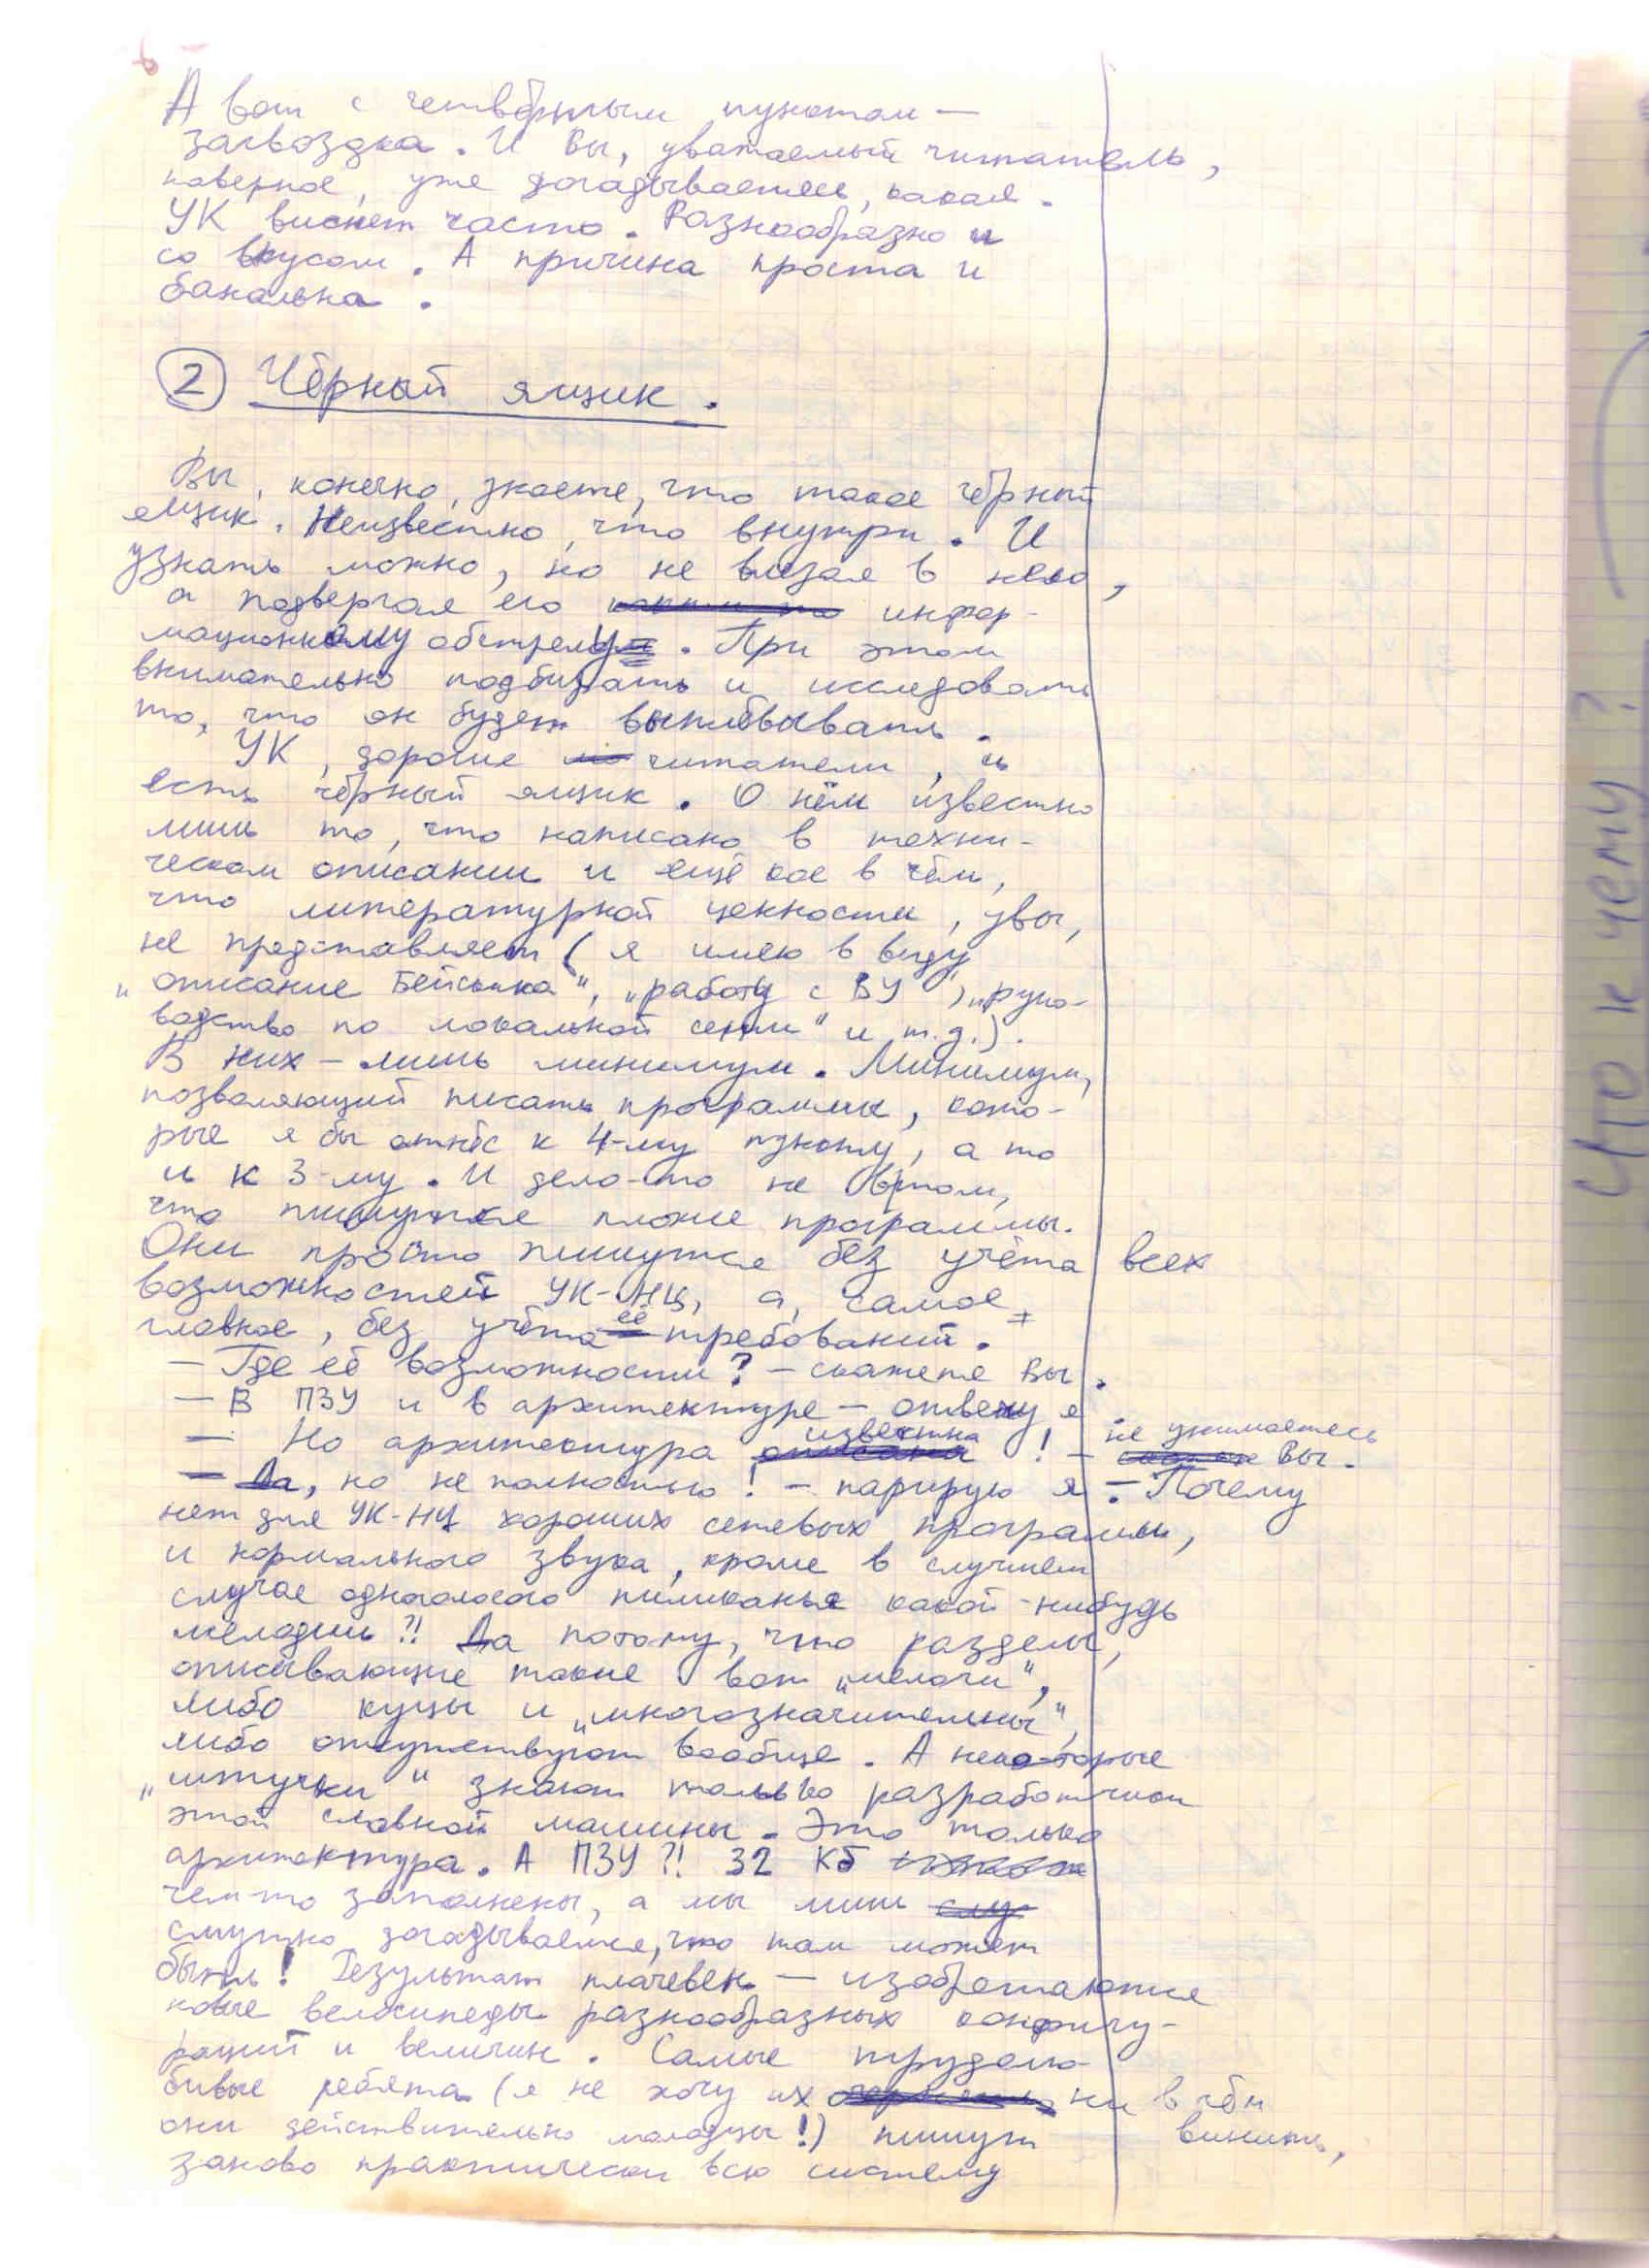 А вот с четвёртым пунктом —
загвоздка. И Вы, уважаемый читатель,
наверное, уже догадываетесь, какая.
УК виснет часто. Разнообразно и
со вкусом. А причина проста и
банальна.
2 Чёрный ящик.
Вы, конечно, знаете, что такое чёрный
ящик. Неизвестно, что внутри. И
узнать можно, но не влезая в него,
а подвергая его инфор-
мационному обстрелу. При этом
внимательно подбирать и исследовать
то, что он будет выплёвывать.
УК, дорогие читатели, и
есть чёрный ящик. О нём известно
лишь то, что написано в техни-
ческом описании и ещё кое в чём,
что литературной ценности, увы,
не представляет (я имею в виду
„описание Бейсика", „работу с ВУ", „руко-
водство по локальной сети" и т.д.).
В них — лишь минимум. Минимум,
позволяющий писать программы, кото-
рые я бы отнёс к 4-му пункту, а то
и к 3-му. И дело-то не в том,
что пишутся плохие программы.
Они просто пишутся без учёта всех
возможностей УК-НЦ, а, самое
главное, без учёта её требований.
— Где её возможности? — скажете Вы.
— В ПЗУ и в архитектуре — отвечу я
— Но архитектура известна! — не унимаетесь Вы.
— Да, но не полностью! — парирую я. — Почему
нет для УК-НЦ хороших сетевых программ,
и нормального звука, кроме в лучшем
случае одноголосого пиликанья какой-нибудь
мелодии?! Да потому, что разделы,
описывающие такие вот „мелочи",
либо куцы и „многозначительны",
либо отсутствуют вообще. А некоторые
„штучки" знают только разработчики
этой славной машины. Это только
архитектура. А ПЗУ?! 32 Кб
чем-то заполнены, а мы лишь
смутно догадываемся, что там может
быть! Результат плачевен — изобретаются
новые велосипеды разнообразных конфигу-
раций и величин. Самые трудолю-
бивые ребята (я не хочу их ни в чём винить,
они действительно молодцы!) пишут
заново практически всю систему
Что к чему?